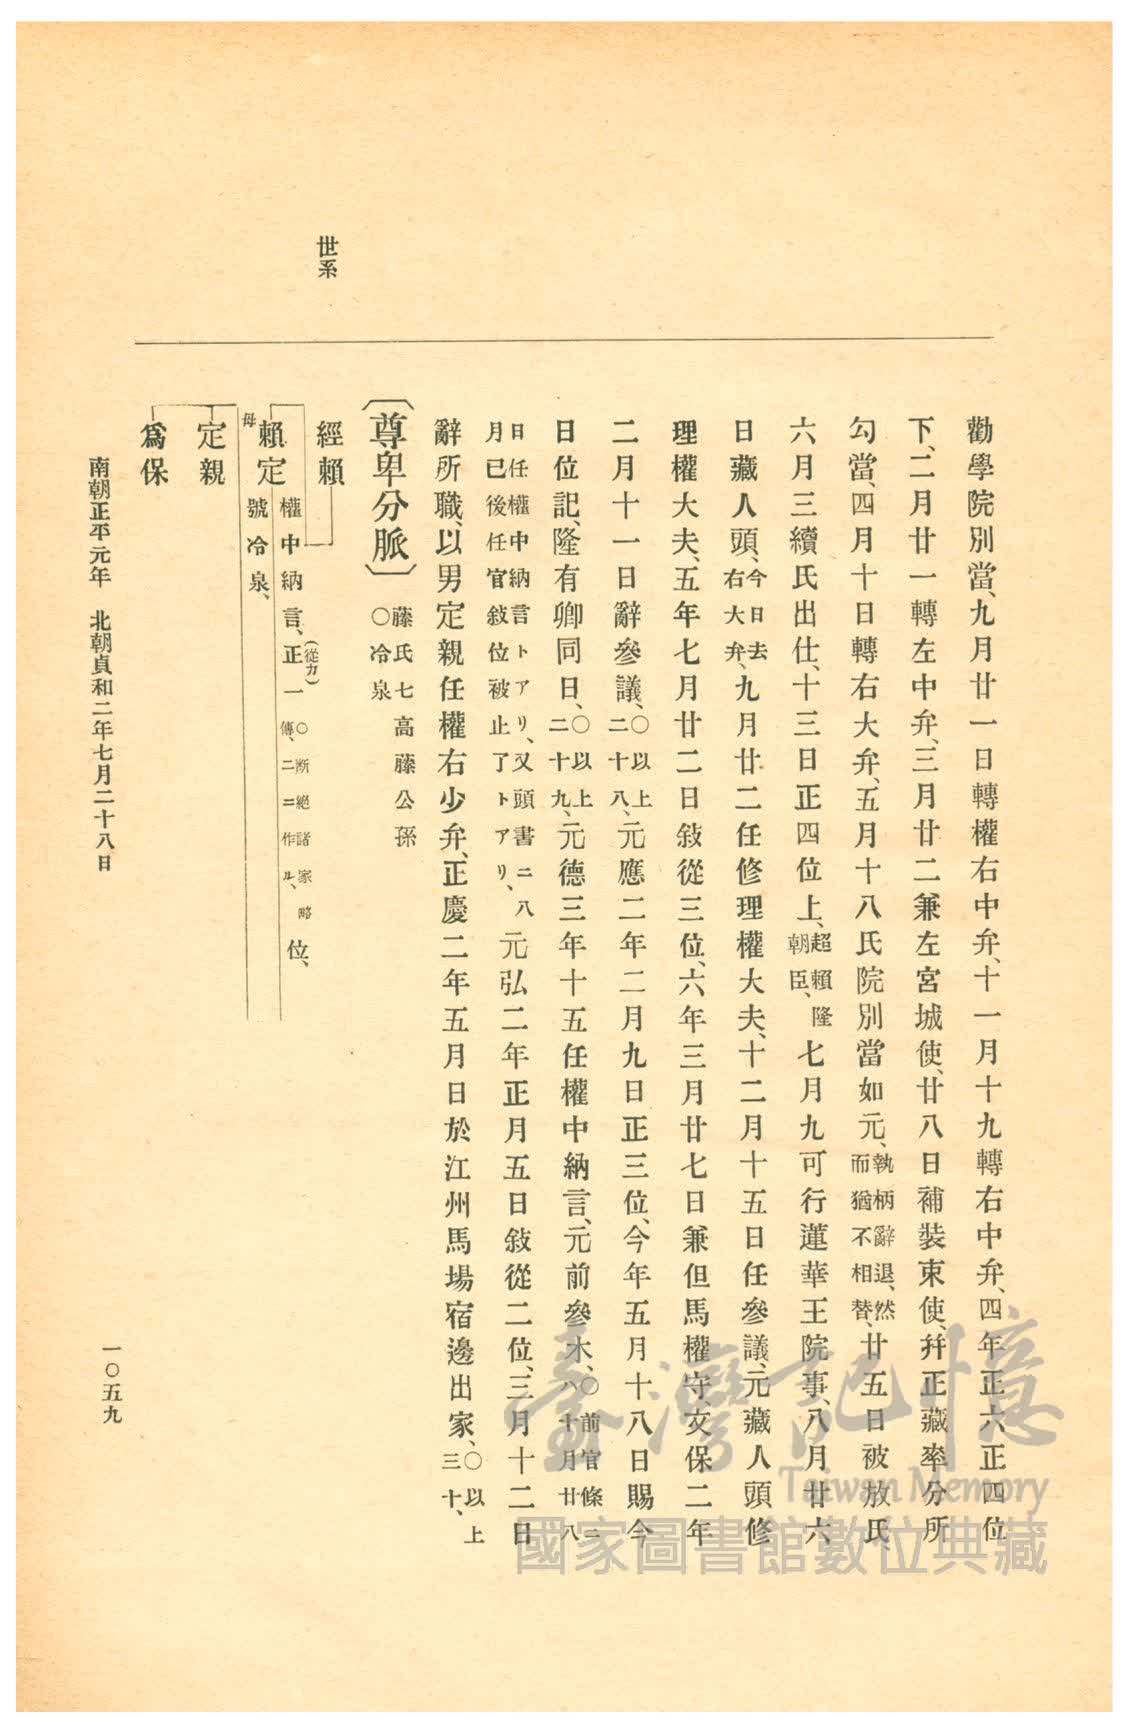 世系
勸學院別當、九月廿一日轉權右中弁、十一月十九轉右中弁、四年正六正四位
下、二月廿一轉左中弁、三月廿二兼左宮城使、廿八日補裝束使、幷正藏率分所
勾當、四月十日轉右大弁、五月十八氏院別當如元、執柄辭退、然而猶不相替、廿五日被放氏、
六月三續氏出仕、十三日正四位上、超賴隆朝臣、七月九可行蓮華王院事、八月廿六、
日藏人頭、今日去右大弁、九月廿二任修理權大夫、十二月十五日任參議、元藏人頭、修
理權大夫、五年七月廿二日敍從三位、六年三月廿七日兼但馬權守、文保二年
二月十一日辭參議、〇以上二十八、元應二年二月九日正三位、今年五月十八日賜今
日位記、隆有卿同日、〇以上二十九、元德三年十五任權中納言、元前參木、〇前官條二八十月廿八
日任權中納言トアリ、又頭書ニ八月已後任官敍位被止了トアリ、元弘二年正月五日敍從二位、三月十二日
辭所職、以男定親任權右少弁、正慶二年五月日於江州馬場宿邊出家、〇以上三十、
〔尊卑分脈〕藤氏七高藤公孫〇冷泉
經賴
賴定 權中納言、正(從カ)一〇斷絕諸家略傳、二ニ作ル、位、
號冷泉、
母
定親
爲保
南朝正平元年 北朝貞和二年七月二十八日
一〇五九
臺灣記憶
Taiwan Memory
國家圖書館數位典藏